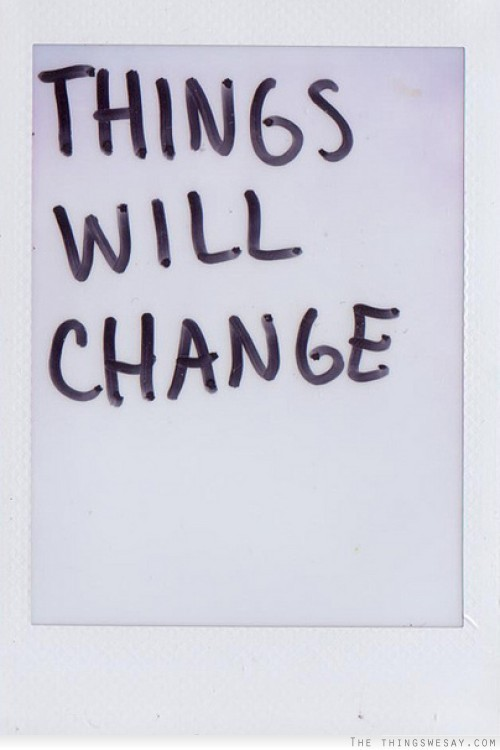 THINGS
WILL
CHANGE
THE THINGSWESAY.COM